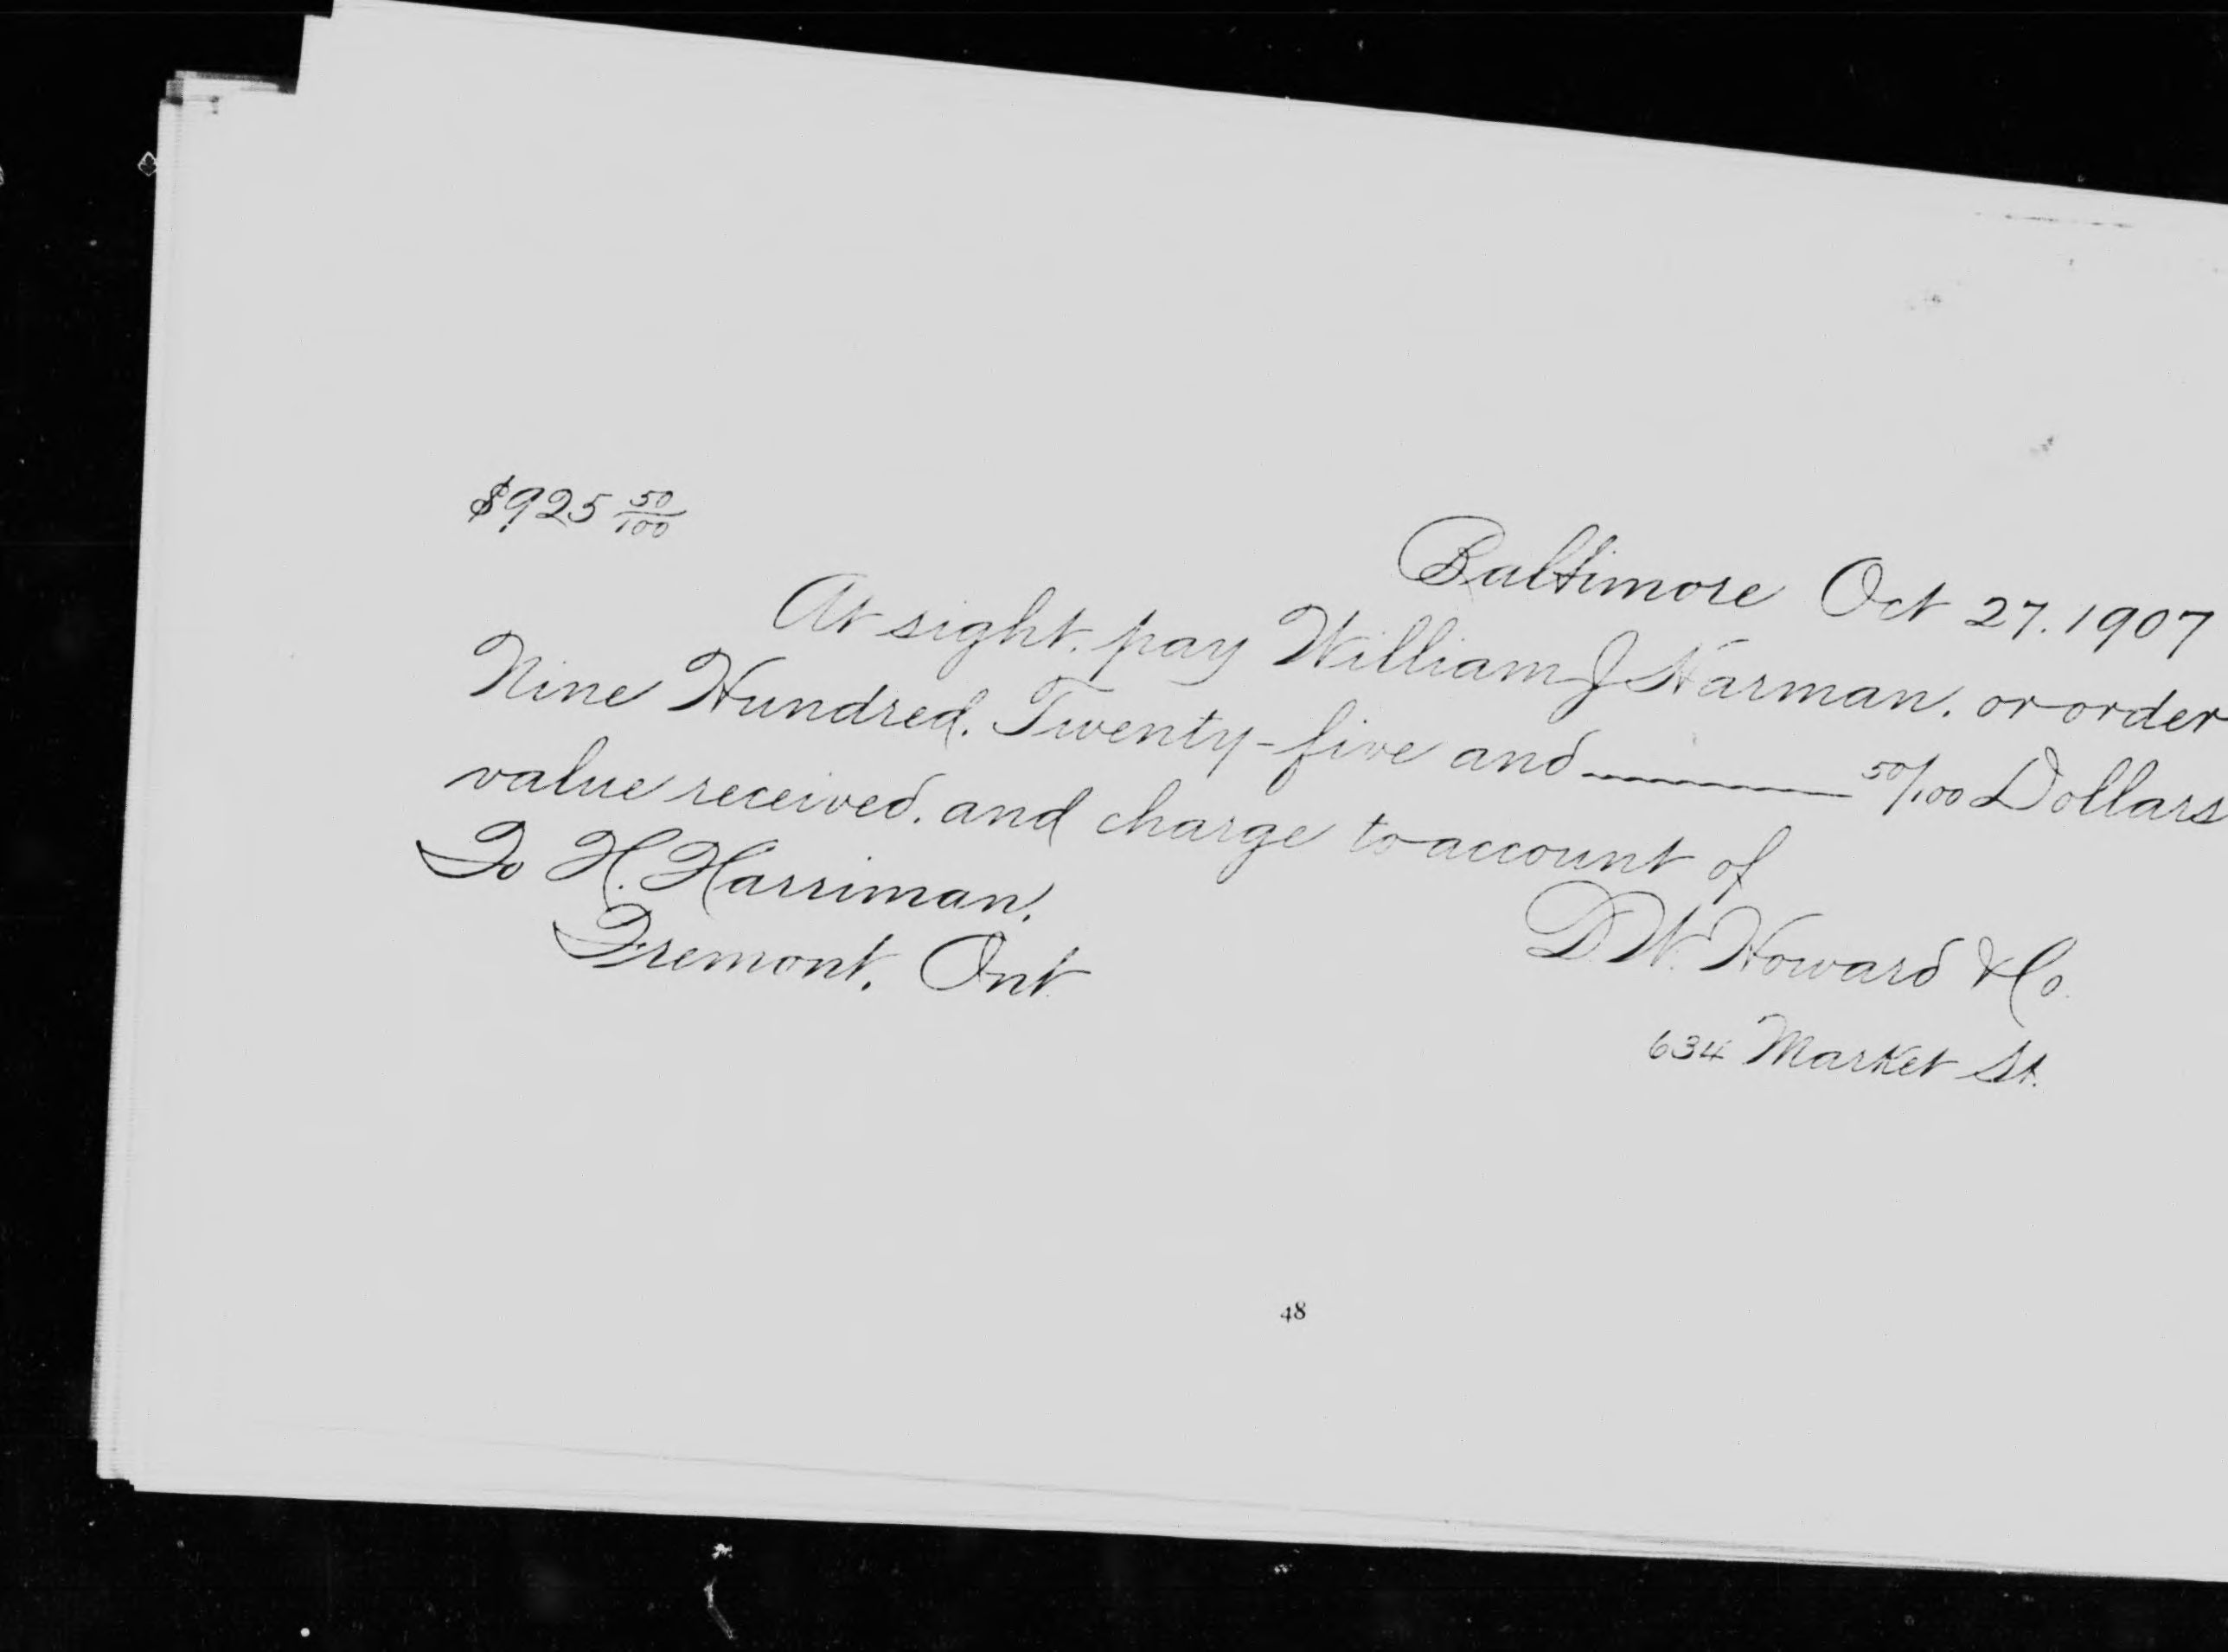 $925 50/100
Baltimore Oct 27. 1907
At sight. pay William J Harman. or order
Nine Hundred. Twenty-five and 50/100 Dollars
value received. and charge to account of
To H. Harriman.
Fremont. Ont.
D.W. Howard & Co.
634 Market St.
48